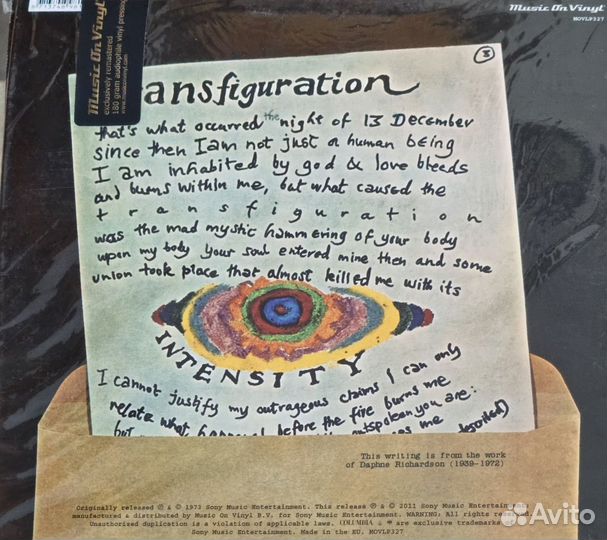 Music On Vinyl
MOVLP327
Music On Vinyl
exclusively remastered
180 gram audiophile vinyl pressing
www.musiconvinyl.com
3
ansfiguration
that's what occurred the night of 13 December
since then I am not just a human being
I am inhabited by god & love bleeds
and burns within me, but what caused the
transfiguration
was the mad mystic hammering of your body
upon my body your soul entered mine then and some
union took place that almost killed me with its
INTENSITY
I cannot justify my outrageous claims I can only
relate what happened before the fire burns me
but outspoken you are:
me
This writing is from the work
of Daphne Richardson (1939-1972)
Originally released ℗ & © 1973 Sony Music Entertainment. This release ℗ & © 2011 Sony Music Entertainment
manufactured & distributed by Music On Vinyl B.V. for Sony Music Entertainment. WARNING: All rights reserved.
Unauthorized duplication is a violation of applicable laws. COLUMBIA & are exclusive trademarks
Sony Music Entertainment. Made in the EU. MOVLP327
Avito